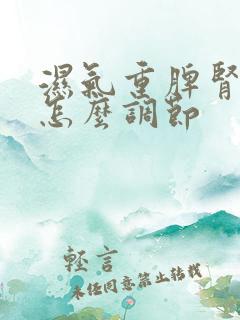 濕氣重脾腎
怎麼調節
輕言
未經同意禁止轉載